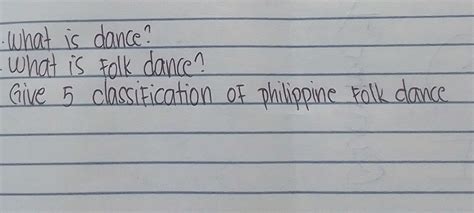 . What is dance?
. What is Folk dance?
Give 5 classification of philippine Folk dance